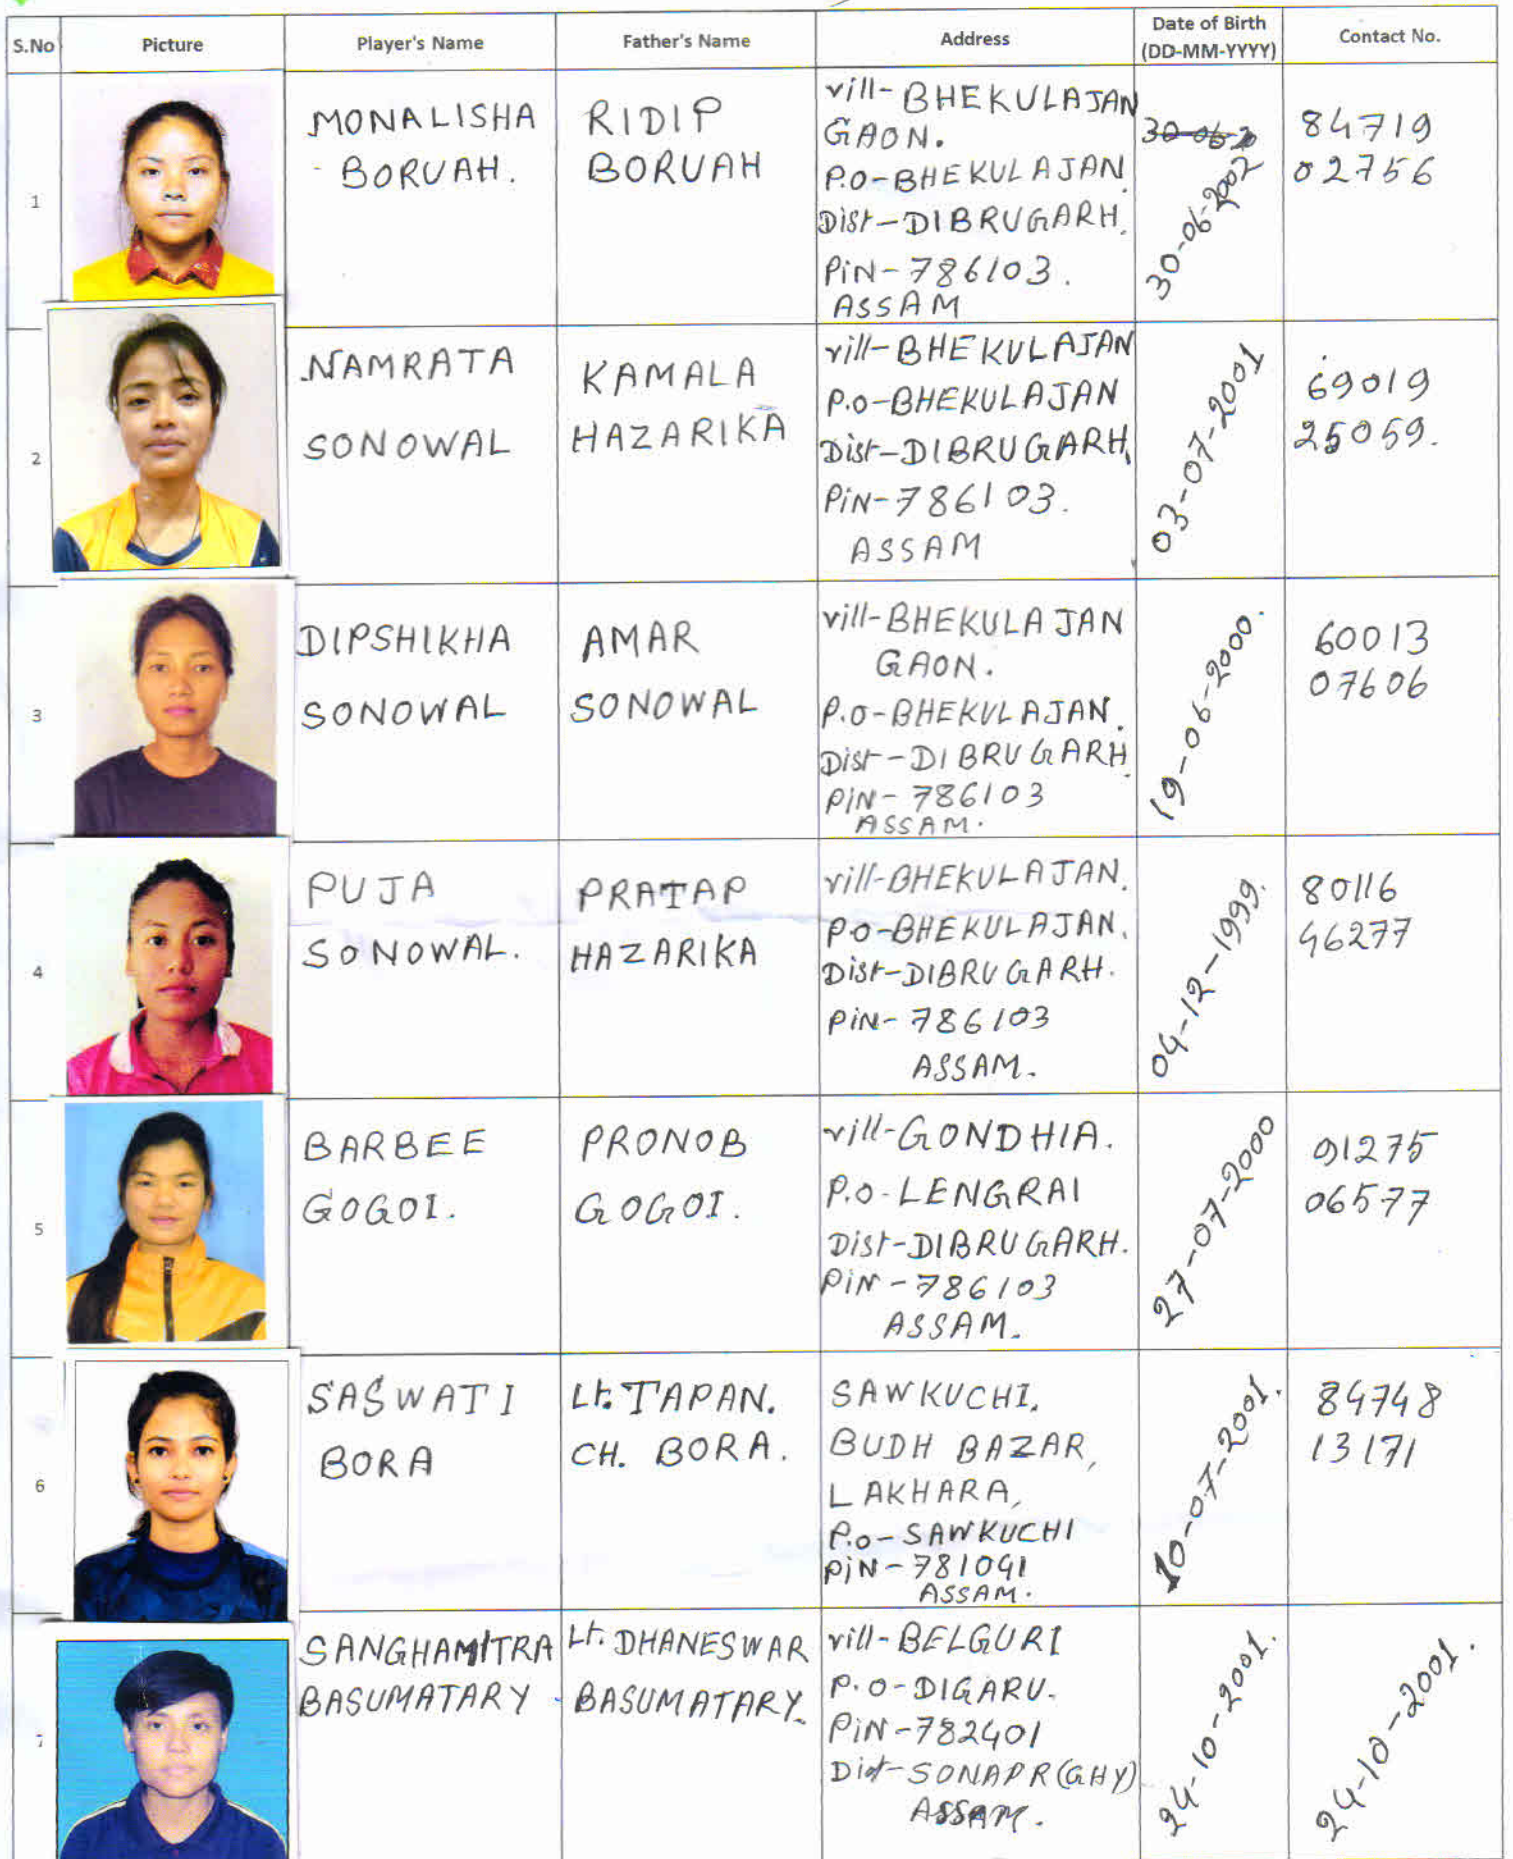 S.No Picture Player's Name Father's Name Address Date of Birth (DD-MM-YYYY) Contact No.
1
MONALISHA
BORUAH.
RIDIP
BORUAH
vill- BHEKULAJAN
GAON.
P.O-BHEKULAJAN
Dist-DIBRUGARH.
PiN-786103.
ASSAM
30-06-20
30-06-2002
84719
02756
2
NAMRATA
SONOWAL
KAMALA
HAZARIKA
vill-BHEKULAJAN
P.o-BHEKULAJAN
Dist-DIBRUGARH,
PiN-786103.
ASSAM
03-07-2001
69019
25059.
3
DIPSHIKHA
SONOWAL
AMAR
SONOWAL
vill-BHEKULAJAN
GAON.
P.o-BHEKULAJAN.
Dist-DIBRUGARH
PiN-786103
ASSAM.
19-06-2000.
60013
07606
4
PUJA
SONOWAL.
PRATAP
HAZARIKA
vill-BHEKULAJAN.
P.o-BHEKULAJAN.
Dist-DIBRUGARH.
PiN-786103
ASSAM.
04-12-1999.
80116
46277
5
BARBEE
GOGOI.
PRONOB
GOGOI.
vill-GONDHIA.
P.o-LENGRAI
Dist-DIBRUGARH.
PiN-786103
ASSAM.
27-07-2000
91275
06577
6
SASWATI
BORA
Lt. TAPAN.
CH. BORA.
SAWKUCHI.
BUDH BAZAR,
LAKHARA,
P.o-SAWKUCHI
PiN-781041
ASSAM.
10-07-2001.
84748
13171
7
SANGHAMITRA
BASUMATARY
Lt. DHANESWAR
BASUMATARY.
vill-BELGURI
P.O-DIGARU.
PiN-782401
Dist-SONAPR (GHY)
ASSAM.
24-10-2001.
24-10-2001.